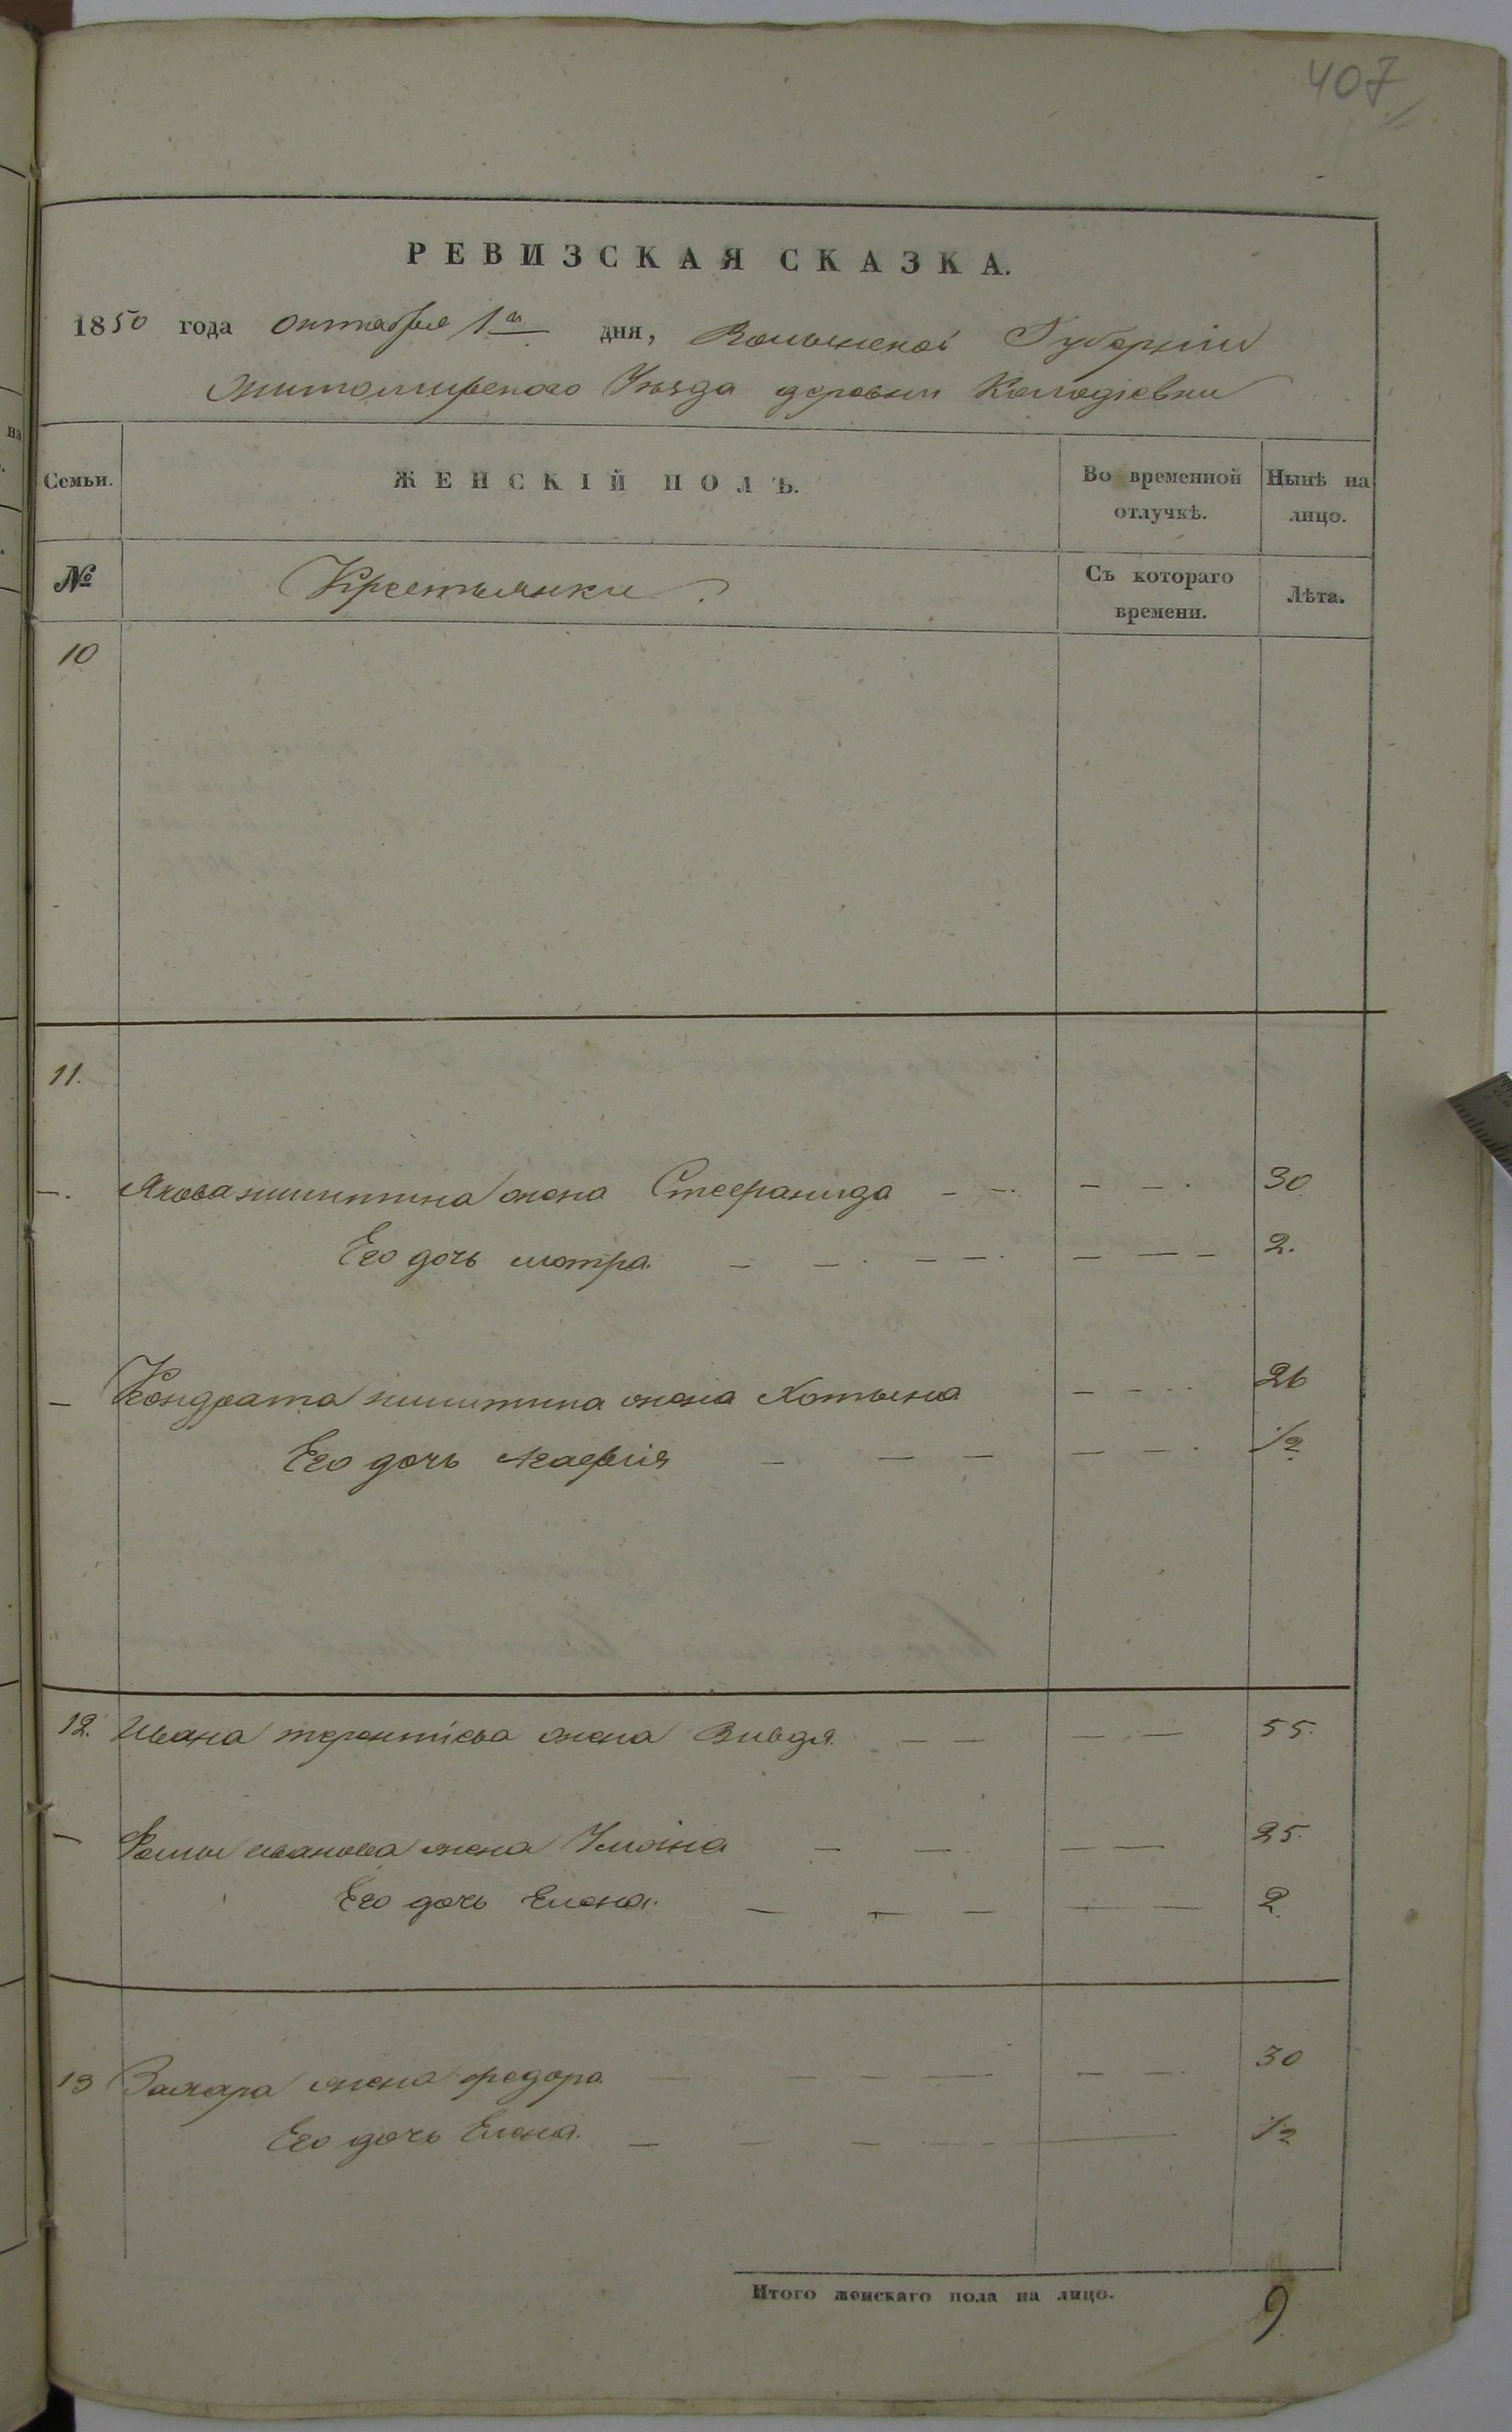 407
РЕВИЗСКАЯ СКАЗКА.
1850 года октября 1го дня, Волынской Губерніи
Житомирского Уѣзда деревни Колодіевки
Семьи. ЖЕНСКІЙ ПОЛЪ. Во временной отлучкѣ. Нынѣ на лицо.
№ Крестьянки. Съ котораго времени. Лѣта.
10
11.
Якова никитина жена Стефанида 30
Его дочь мотра. 2.
Кондрата никитина жена Хотына 26
Его дочь Агафія 1/2
12. Ивана терентіева жена Вивдя. 55.
Фомы иванова жена Уліяна 25.
Его дочь Елена. 2.
13 Захара жена федора 30
Его дочь Елена. 1/2
Итого женскаго пола на лицо. 9